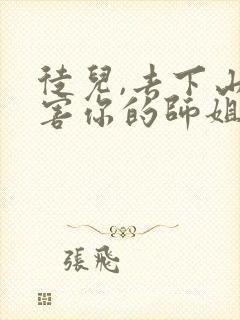 徒兒,去下山
害你的師姐
張飛